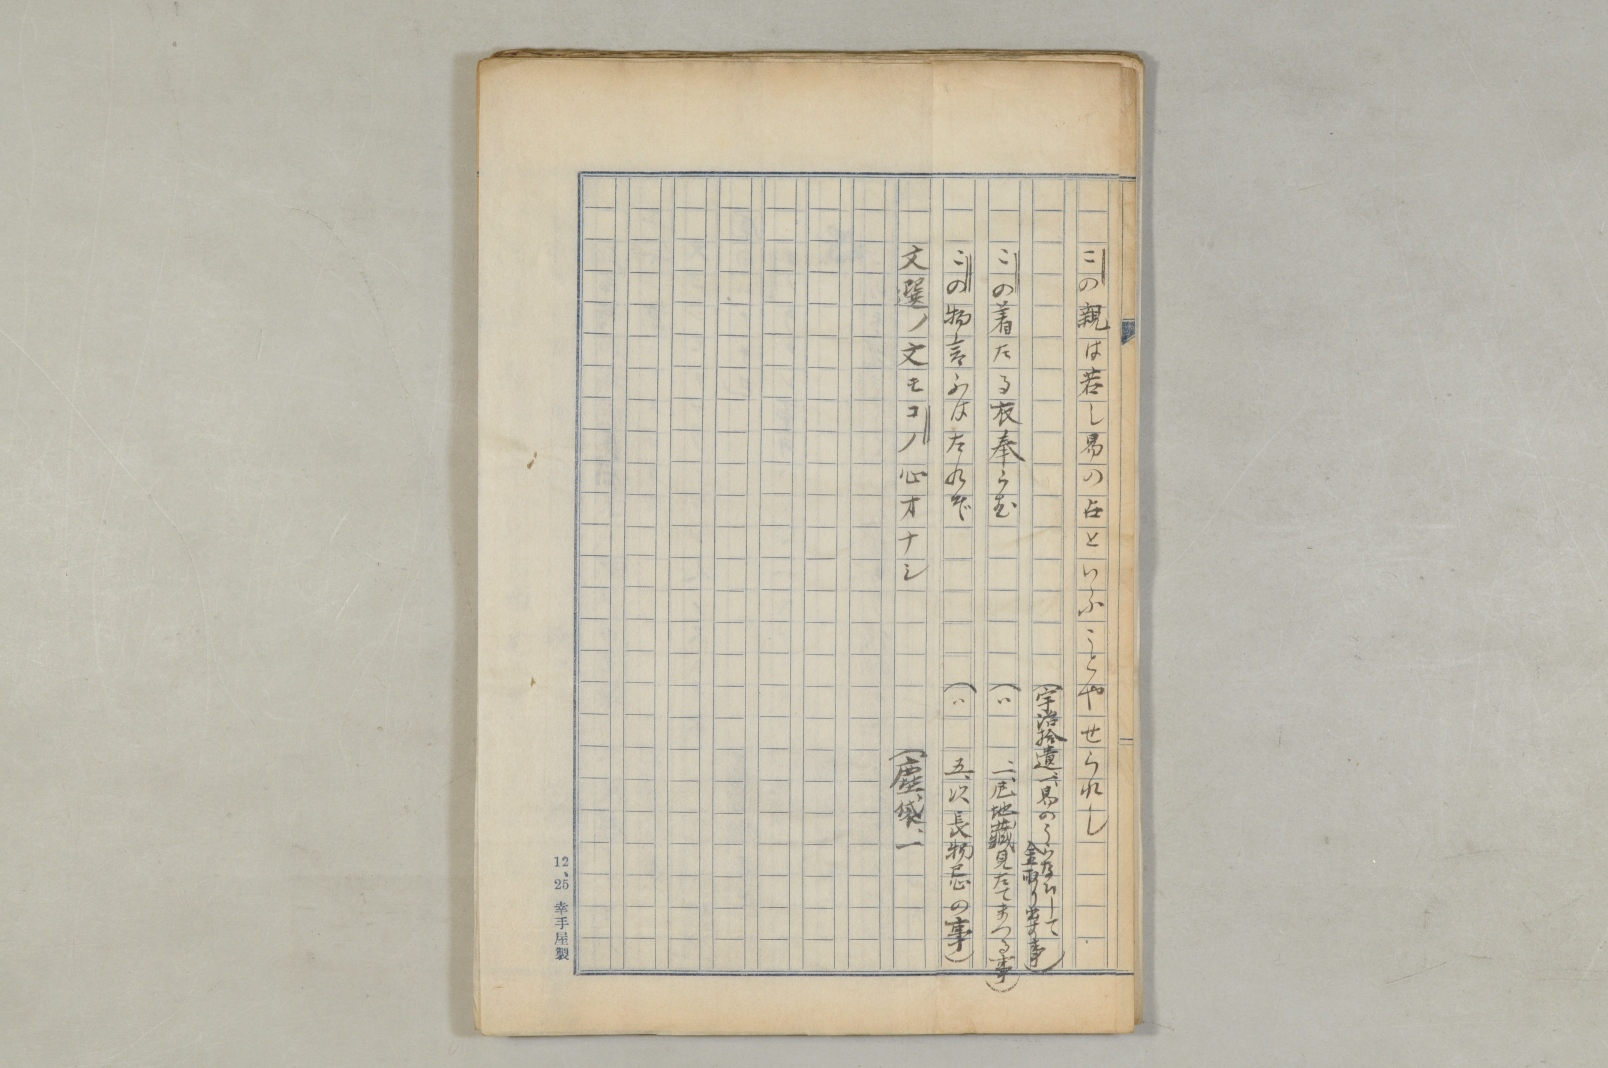 この親は若し易の占といふことやせられし
(宇治拾遺一、易のうらなひして
金取り出す事)
この着たる衣奉らむ
(〃 二、尼地藏見たてまつる事)
この物言ふはたれぞ
(〃 五、次 長物忌の事)
文選ノ文モコノ心オナシ
(塵袋、一
12、25 幸手屋製